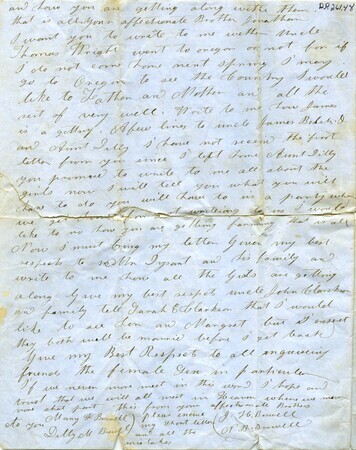 DR26:44
and how you are getting along with them
that is all your affectionate Brother Jonathan
I want you to write to me wether Uncle
Thomas Wright went to oregon or not for if
I do not come home next spring I may
go to Oregon to see the Country I would
like to Father and Mother and all the
rest of very well. Write to me how James
is a getting. A few lines to uncle James
and Aunt Tilly I have not receive the first
letter from you since I left home Aunt Tilly
you promise to write to me all about the
girls now I will tell you what you will
have to do you will have to in a party when
we get for not writing to us I would
like to no how you are getting farming that is all
Now I must bring my letter Give my best
respects to Mr Bryant and his family and
write to me how all the Gals are getting
along Give my best respet uncle John Clarkson
and family tell Sarah E Clarkson that I would
like to see her and Margret but I expect
they both will be married before I get back
Give my Best Respect to all enquireing
friends the female Sex in particular
If we never more meet in this word I hope and
trust that we will all meet in Heaven where we never
more shal part this from your affectionate Brothers
to you Mary F Burwell
Dilly M
please excuse my short letter and all the mistakes
J. H. Burwell
A. B. Burwell